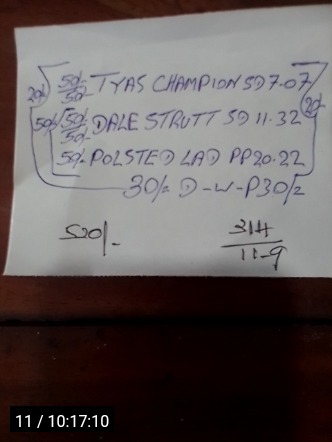 20/- 50/-/50/- TYAS CHAMPION SD 7.07 20/-
50/- 50/-/50/- DALE STRUTT SD 11.32
50/- POLSTED LAD PP 20.22
30/- D-W-P 30/-
520/-
314/11-9
11 / 10:17:10